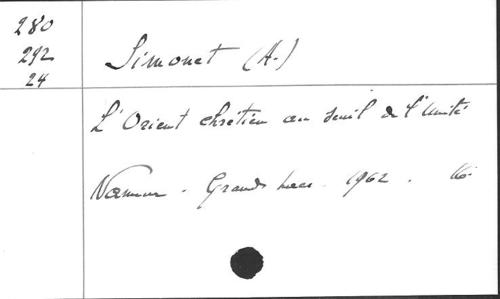 280
292
24
Simonet (A.)
L'Orient chrétien au seuil de l'unité
Namur. Grands lacs. 1962.